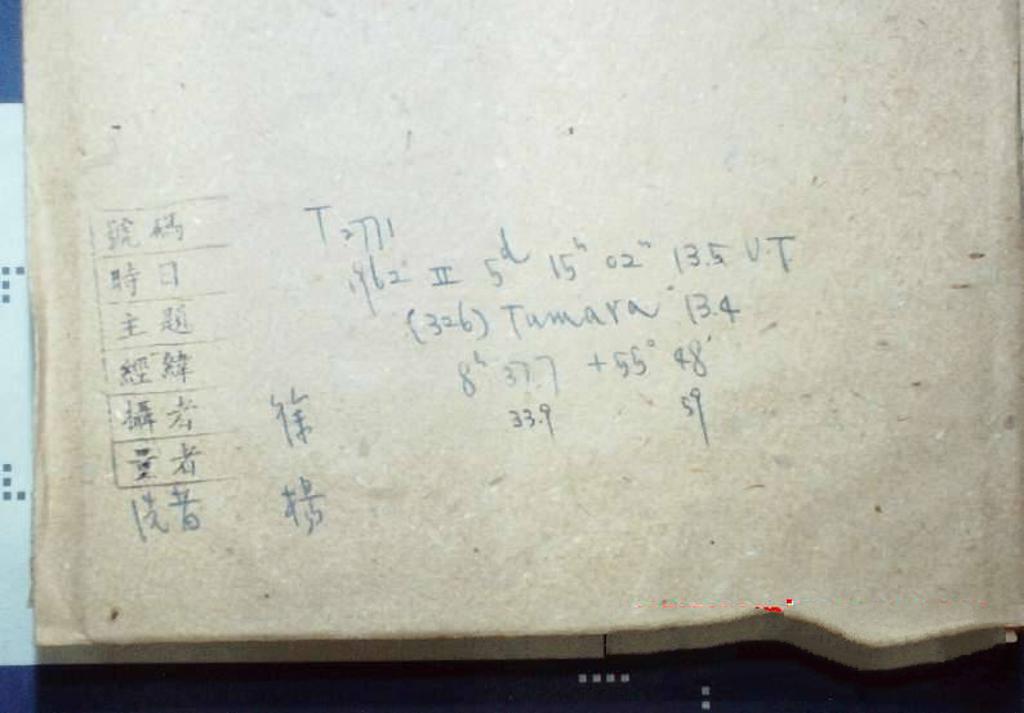 號碼 T2771
時日 1962 II 5d 15h 02m 13.5 U.T
主題 (326) Tamara 13.4
經緯 8h 37.7 +55° 48'
33.9 59
攝者 徐
量者
洗者 楊